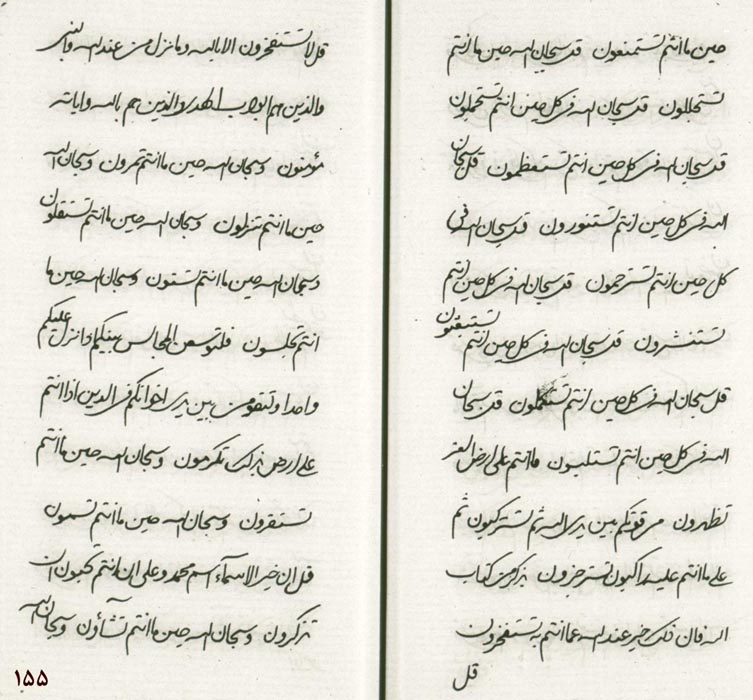 حين ما انتم تستمتعون قد سبحان الله حين ما انتم
تستجللون قد سبحان الله في كل حين انتم تستجملون
قد سبحان الله في كل حين انتم تستعظمون قل سبحان
الله في كل حين انتم تستنورون قد سبحان الله في
كل حين انتم تسترحمون قد سبحان الله في كل حين انتم
تستنشرون قد سبحان الله في كل حين انتم
قل سبحان الله في كل حين انتم تستكملون قد سبحان
الله في كل حين انتم ما انتم على ارض العز
تظهرون بين يدي الله ثم ثم
على ما انتم عليه من كتاب
الله فان ذلك خير عند الله عما انتم به تستفخرون
قل
قل لا تستفخرون الا بالله وما نزل من عند الله
والذين هم اولو الهدى والذين هم بالله واياته
مؤمنون وسبحان الله حين ما انتم وسبحان الله
حين ما انتم تنزلون وسبحان الله حين ما انتم تستقلون
وسبحان الله حين ما انتم وسبحان الله حين ما
انتم تجلسون المجالس بينكم اذا نزل عليكم
واحدا ولتقومن بين يدي اخوانكم في الدين اذا انتم
على ارض تكرمون وسبحان الله حين ما انتم
تستقرون وسبحان الله حين ما انتم تسمون
قل ان خير الاسماء اسم محمد وعلى ان انتم تحبون ان
تذكرون وسبحان الله حين ما انتم تشاؤن وسبحان الله
١٥٥